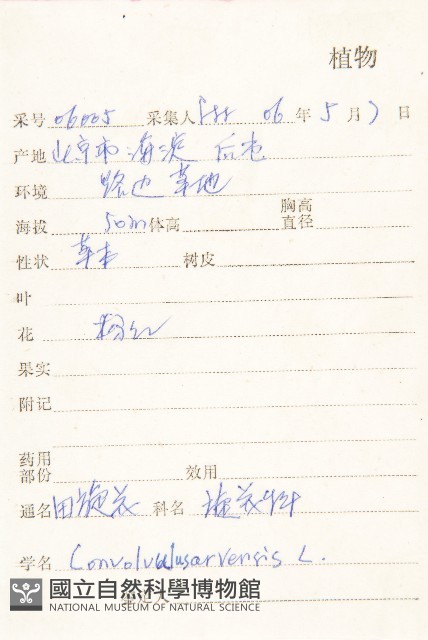 植物
采号 06005 采集人 06 年 5 月 7 日
产地 北京市 海淀 后屯
环境 路边 草地
海拔 50m 体高 胸高直径
性状 草本 树皮
叶
花 粉红
果实
附记
药用部份 效用
通名 田旋花 科名 旋花科
学名 Convolvulus arvensis L.
國立自然科學博物館
NATIONAL MUSEUM OF NATURAL SCIENCE